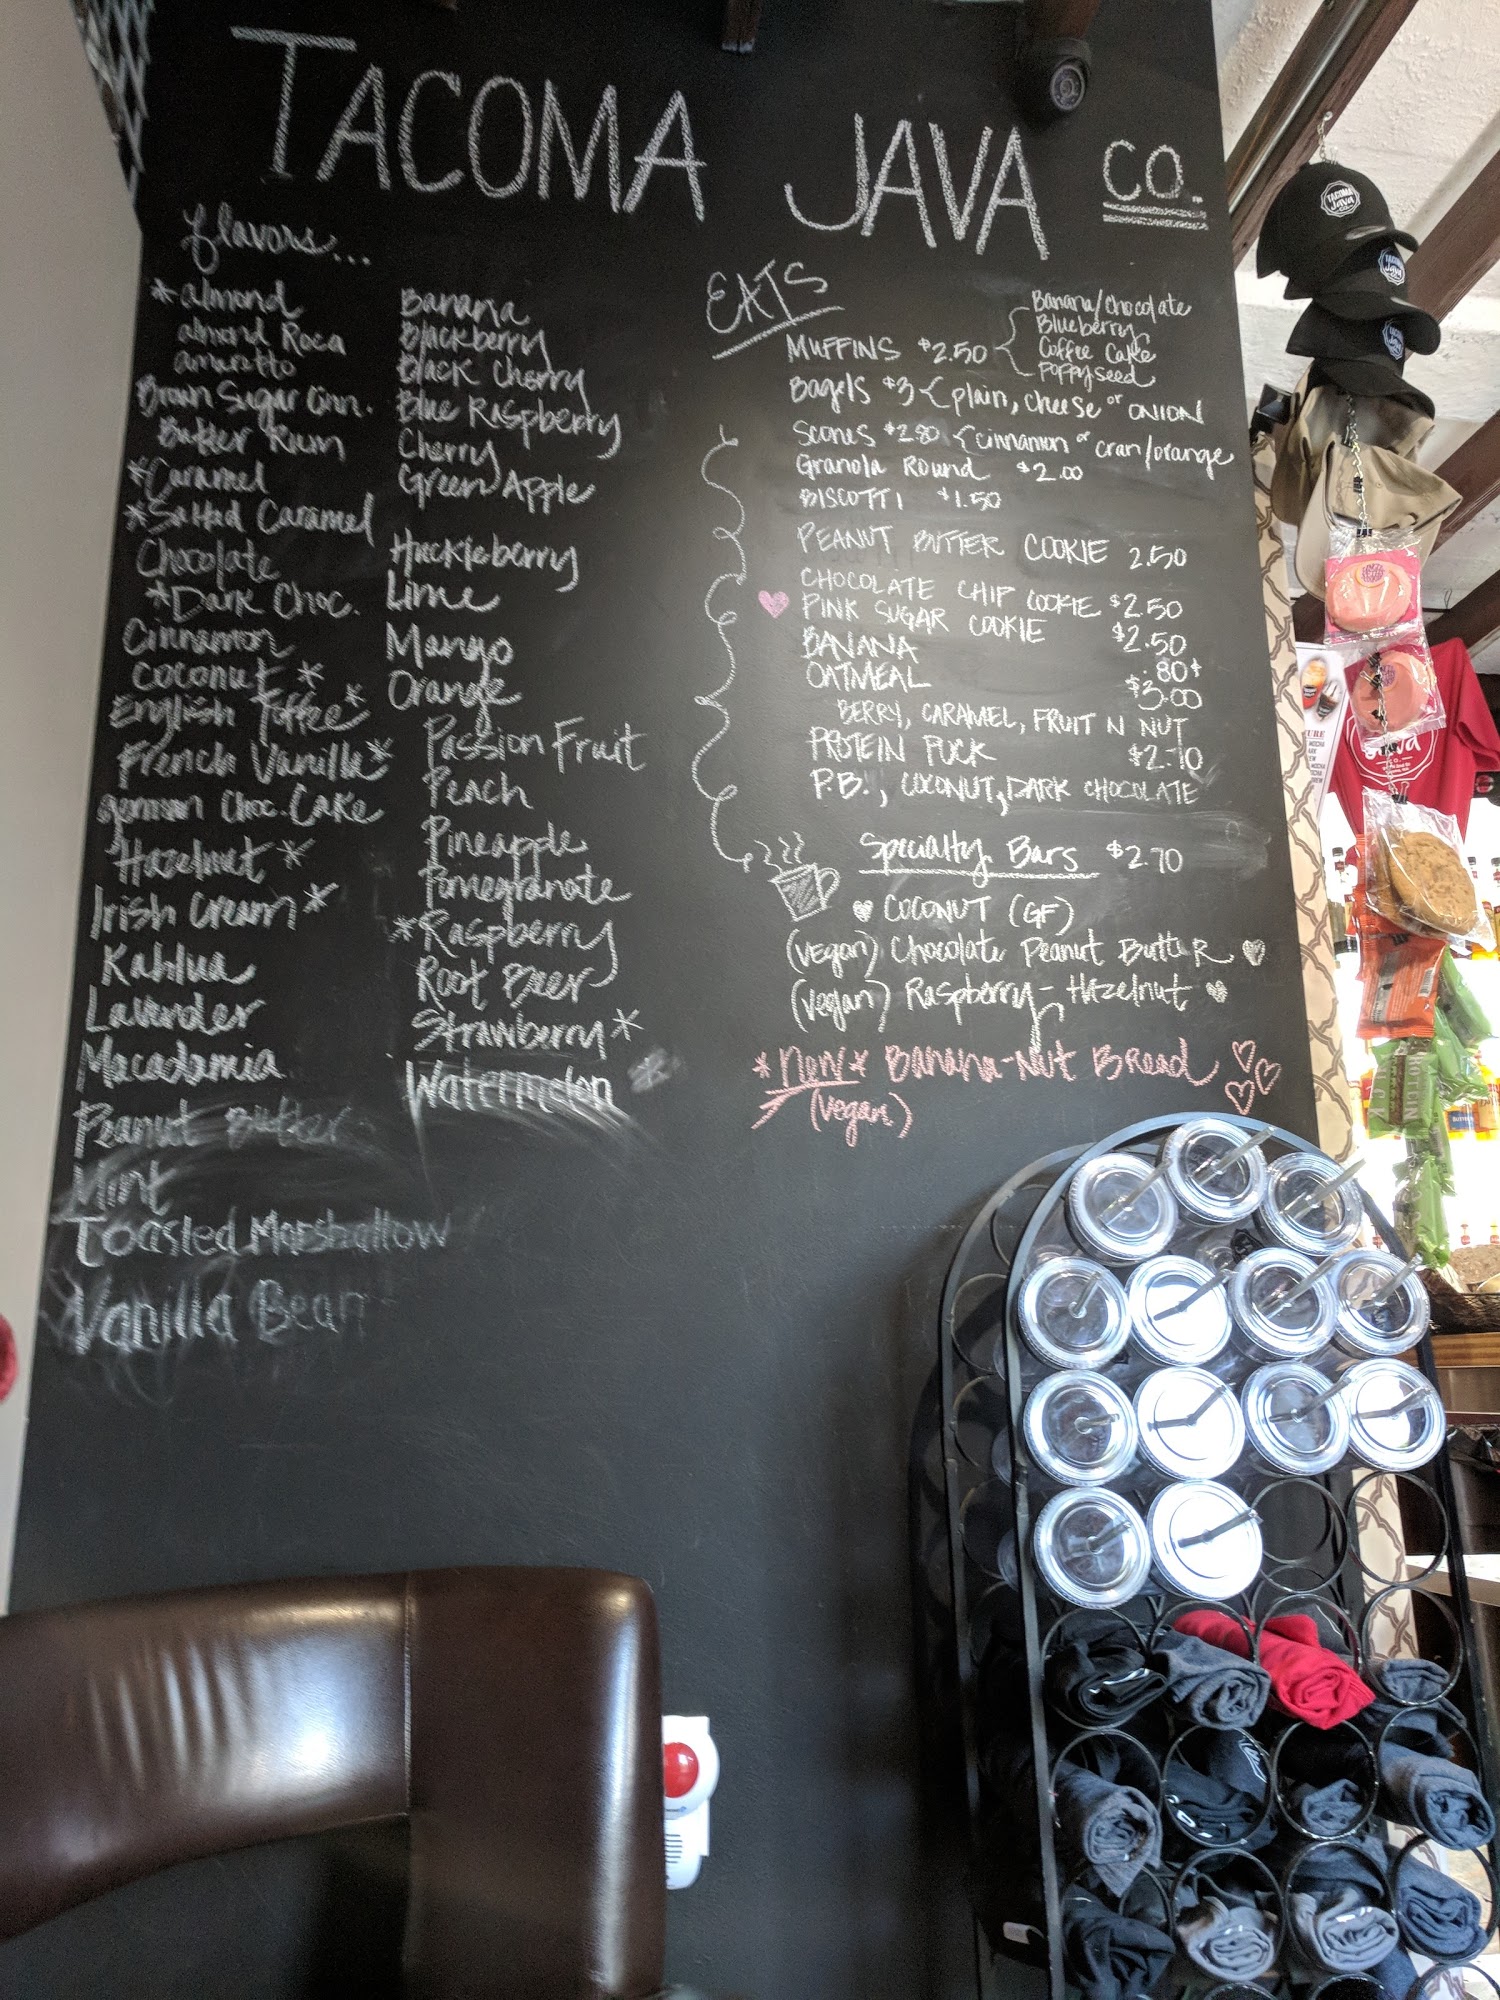 TACOMA JAVA CO.
flavors...
*almond
almond Roca
amaretto
Brown Sugar Cinn.
Butter Rum
*Caramel
*Salted Caramel
Chocolate
*Dark Choc.
Cinnamon
coconut *
English Toffee*
French Vanilla*
german Choc. Cake
Hazelnut *
Irish Cream*
Kahlua
Lavender
Macadamia
Peanut Butter
Mint
Toasted Marshallow
Vanilla Bean
Banana
Blackberry
Black Cherry
Blue Raspberry
Cherry
Green Apple
Huckleberry
Lime
Mango
Orange
Passion Fruit
Peach
Pineapple
Pomegranate
*Raspberry
Root Beer
Strawberry*
Watermelon *
EATS
MUFFINS $2.50
Banana/Chocolate
Blueberry
Coffee Cake
Poppyseed
Bagels $3 {plain, cheese or ONION
Scones $2.80 {cinnamon or cran/orange
Granola Round $2.00
BISCOTTI $1.50
PEANUT BUTTER COOKIE 2.50
CHOCOLATE CHIP COOKIE $2.50
PINK SUGAR COOKIE $2.50
BANANA .80¢
OATMEAL $3.00
BERRY, CARAMEL, FRUIT N NUT
PROTEIN PUCK $2.70
P.B., COCONUT, DARK CHOCOLATE
Specialty Bars $2.70
♥ COCONUT (GF)
(vegan) Chocolate Peanut Butter ♥
(vegan) Raspberry-Hazelnut ♥
*new* Banana-Nut Bread
(vegan)
TACOMA
Java